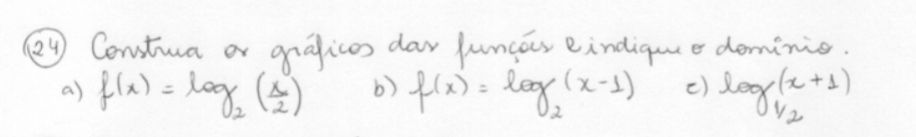 24 Construa os gráficos das funções e indique o domínio.
a) f(x) = log₂ (x/2) b) f(x) = log₂ (x-1) c) log₁/₂ (x+1)